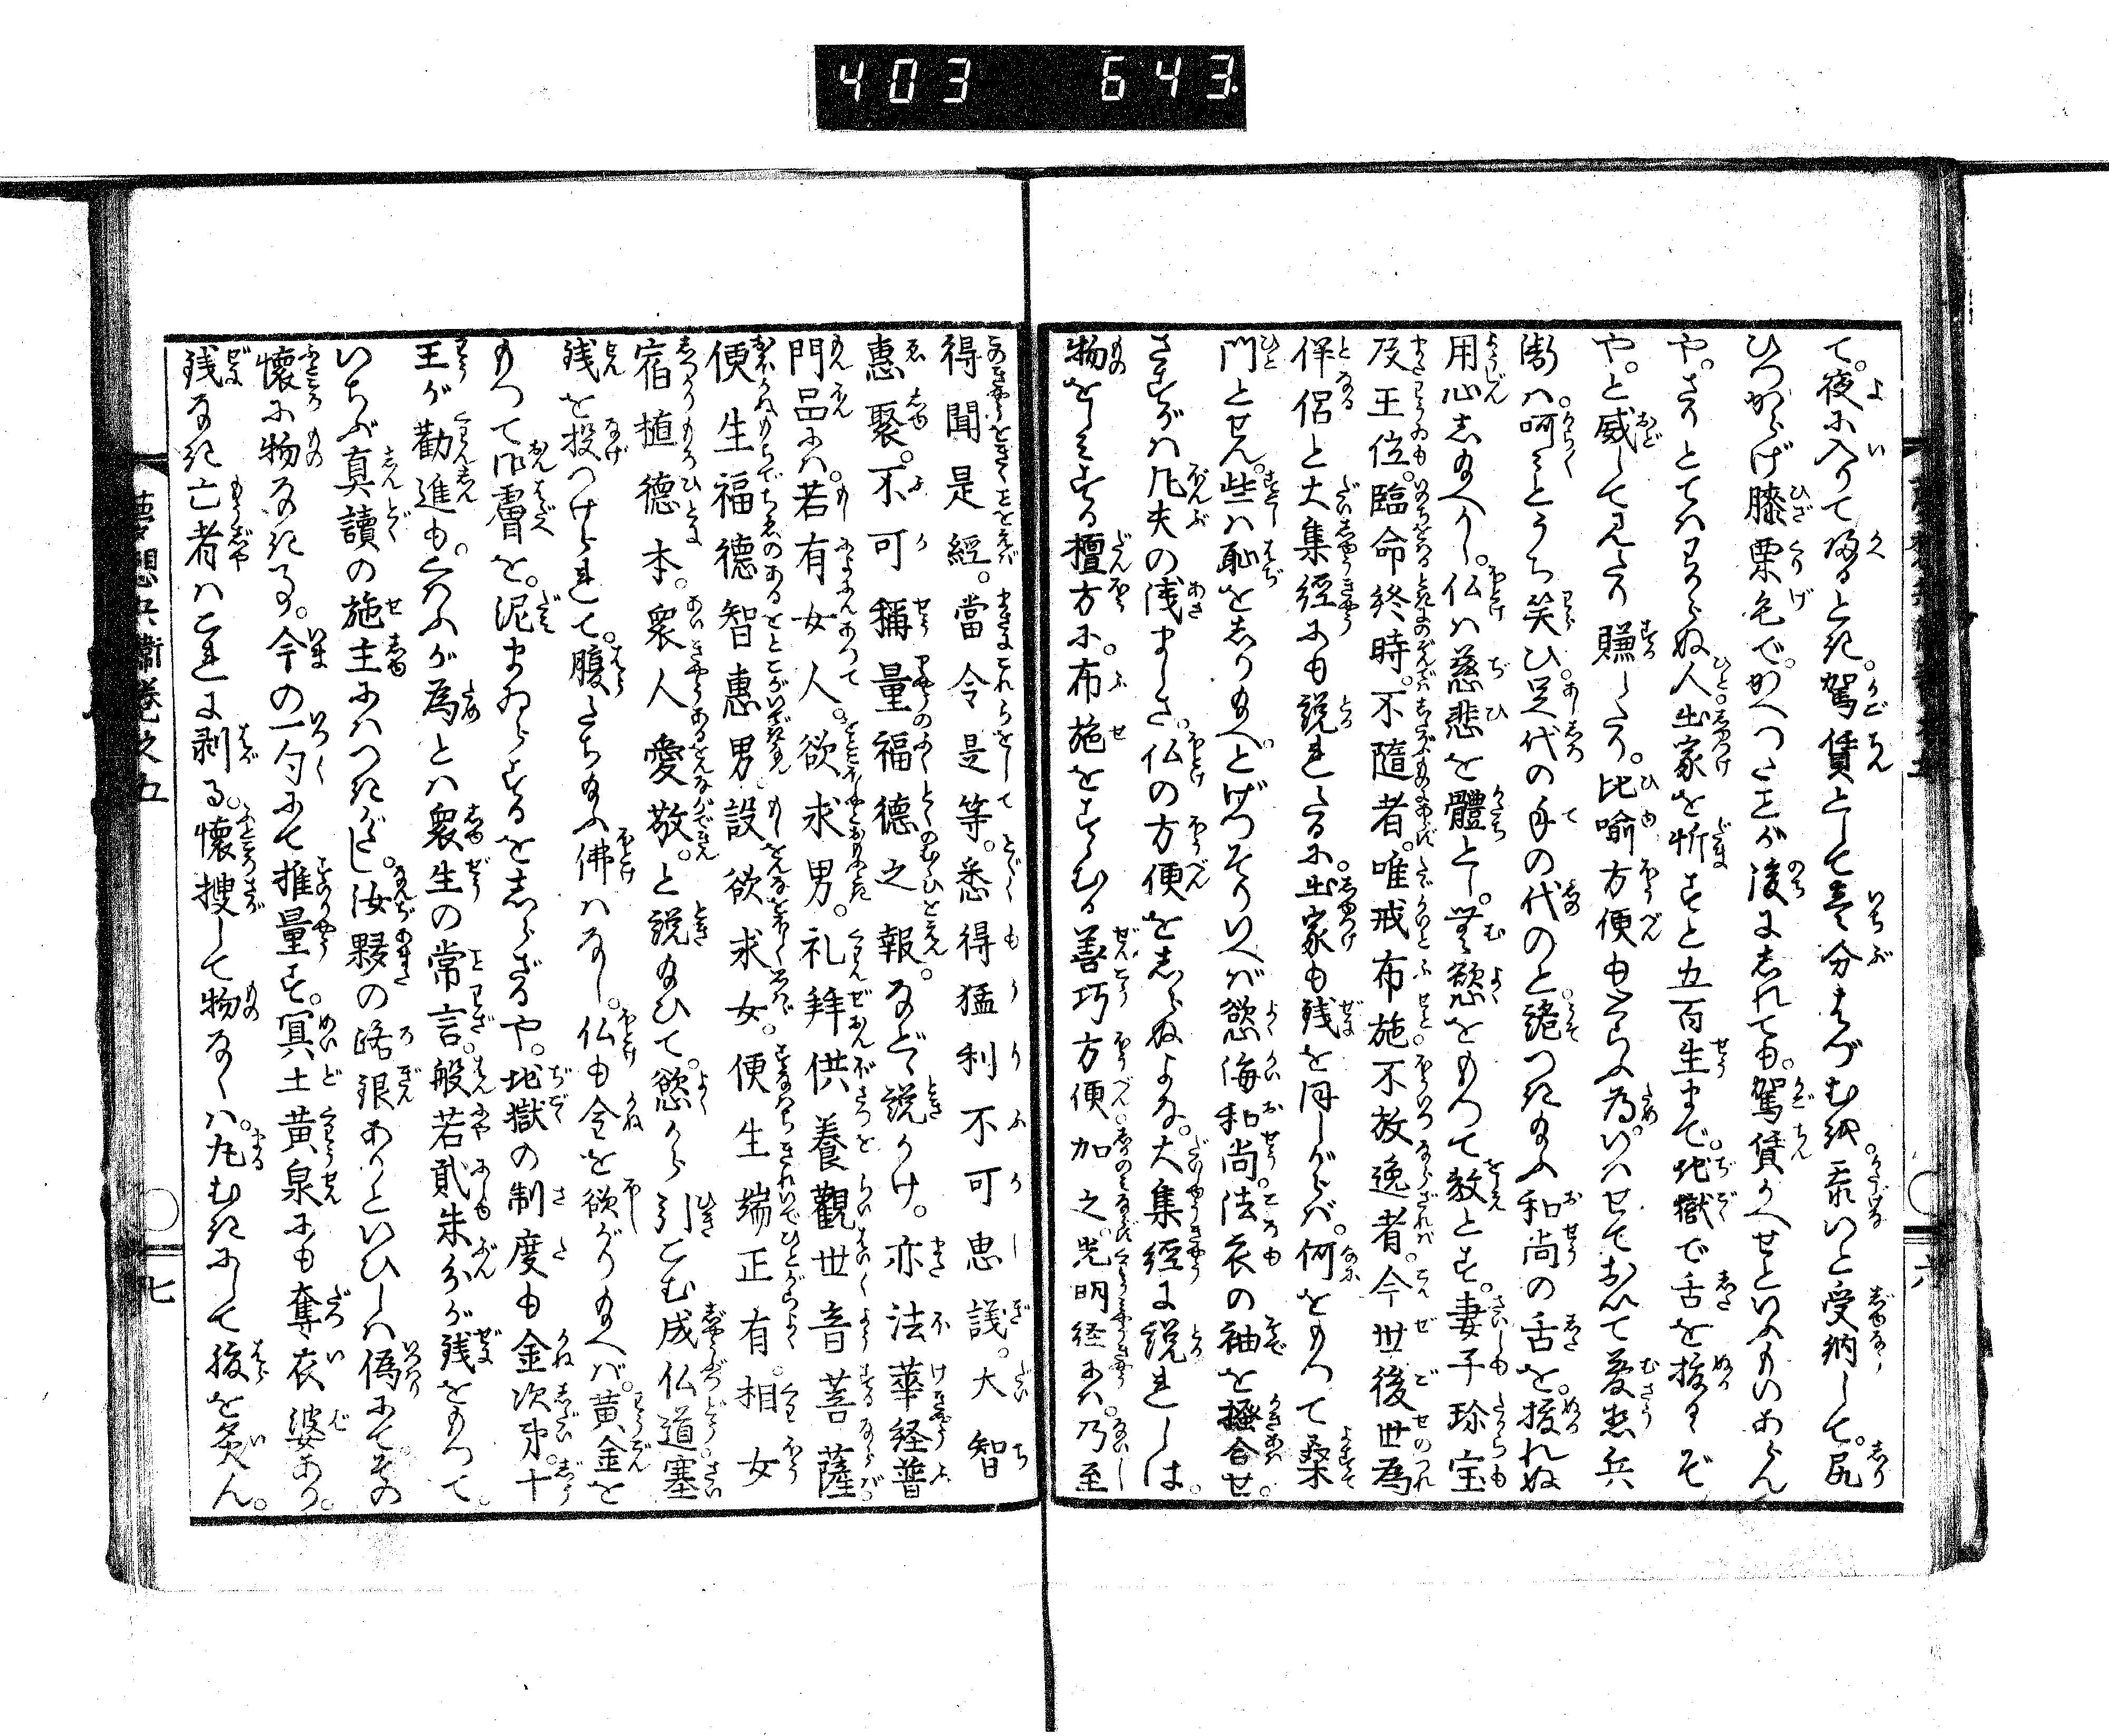 403 643
て。夜に入りて帰るとき。駕賃として壱分はづむ紙。忝いと受納して。尻
ひつからげ膝栗毛で。かへつたことが後にしれても。駕賃かへせといふものいあらん
や。さりとてはわるらぬ人。出家を誑すと五百生まで。地獄で舌を抜るゝぞ
や。と威して見たり賺したり。比喩方便も口へらふ為。いはせておいて夢想兵
衛ハ。呵々とうち笑ひ。足代の手の代のと。譃つき給ふ和尚の舌を。抜れぬ
用心し給へかし。仏は慈悲を體とし。無慾をもつて教とす。妻子珍宝
及王位。臨命終時。不隨者。唯戒布施不放逸者。今世後世為
伴侶と大集経にも説れたるに。出家も銭を用しがらば。何をもつて桑
門とせん。些は恥をしり給へ。とげつそりいへば慾海和尚。法衣の袖を掻合せ。
さすがは凡夫の浅ましさ。仏の方便をしらぬよな。大集経に説れしは。
物をしみする檀方に。布施をすゝむる善巧方便。加之光明経にハ。乃至
得聞是經。當令是等。悉得猛利不可思議。大智
惠聚。不可稱量福德之報。など説かけ。亦法華経普
門品にハ。若有女人。欲求男。礼拜供養觀世音菩薩。
便生福德智惠男。設欲求女。便生端正有。相女
宿植德本。衆人愛敬。と説給ひて。慾から引こむ成仏道塞
銭を投つけられて。腹たち給ふ佛ハなし。仏も金を欲がり給へば。黄金を
もつて御膚を。泥まみらするをしらざるや。地獄の制度も金次第。十
王が勧進も。くらふが為とハ衆生の常言。般若貳朱分が銭をもつて。
いちぶ真讀の施主にハつきがたし。汝夥の路銀ありといひしハ偽にて。その
懐に物なき事。今の一句にて推量す。冥土黄泉にも奪衣婆あり。
銭なき亡者ハこれに剥る。懐捜して物なくハ。丸むきにして後を炙ん。
夢想兵衛巻之五
六
七